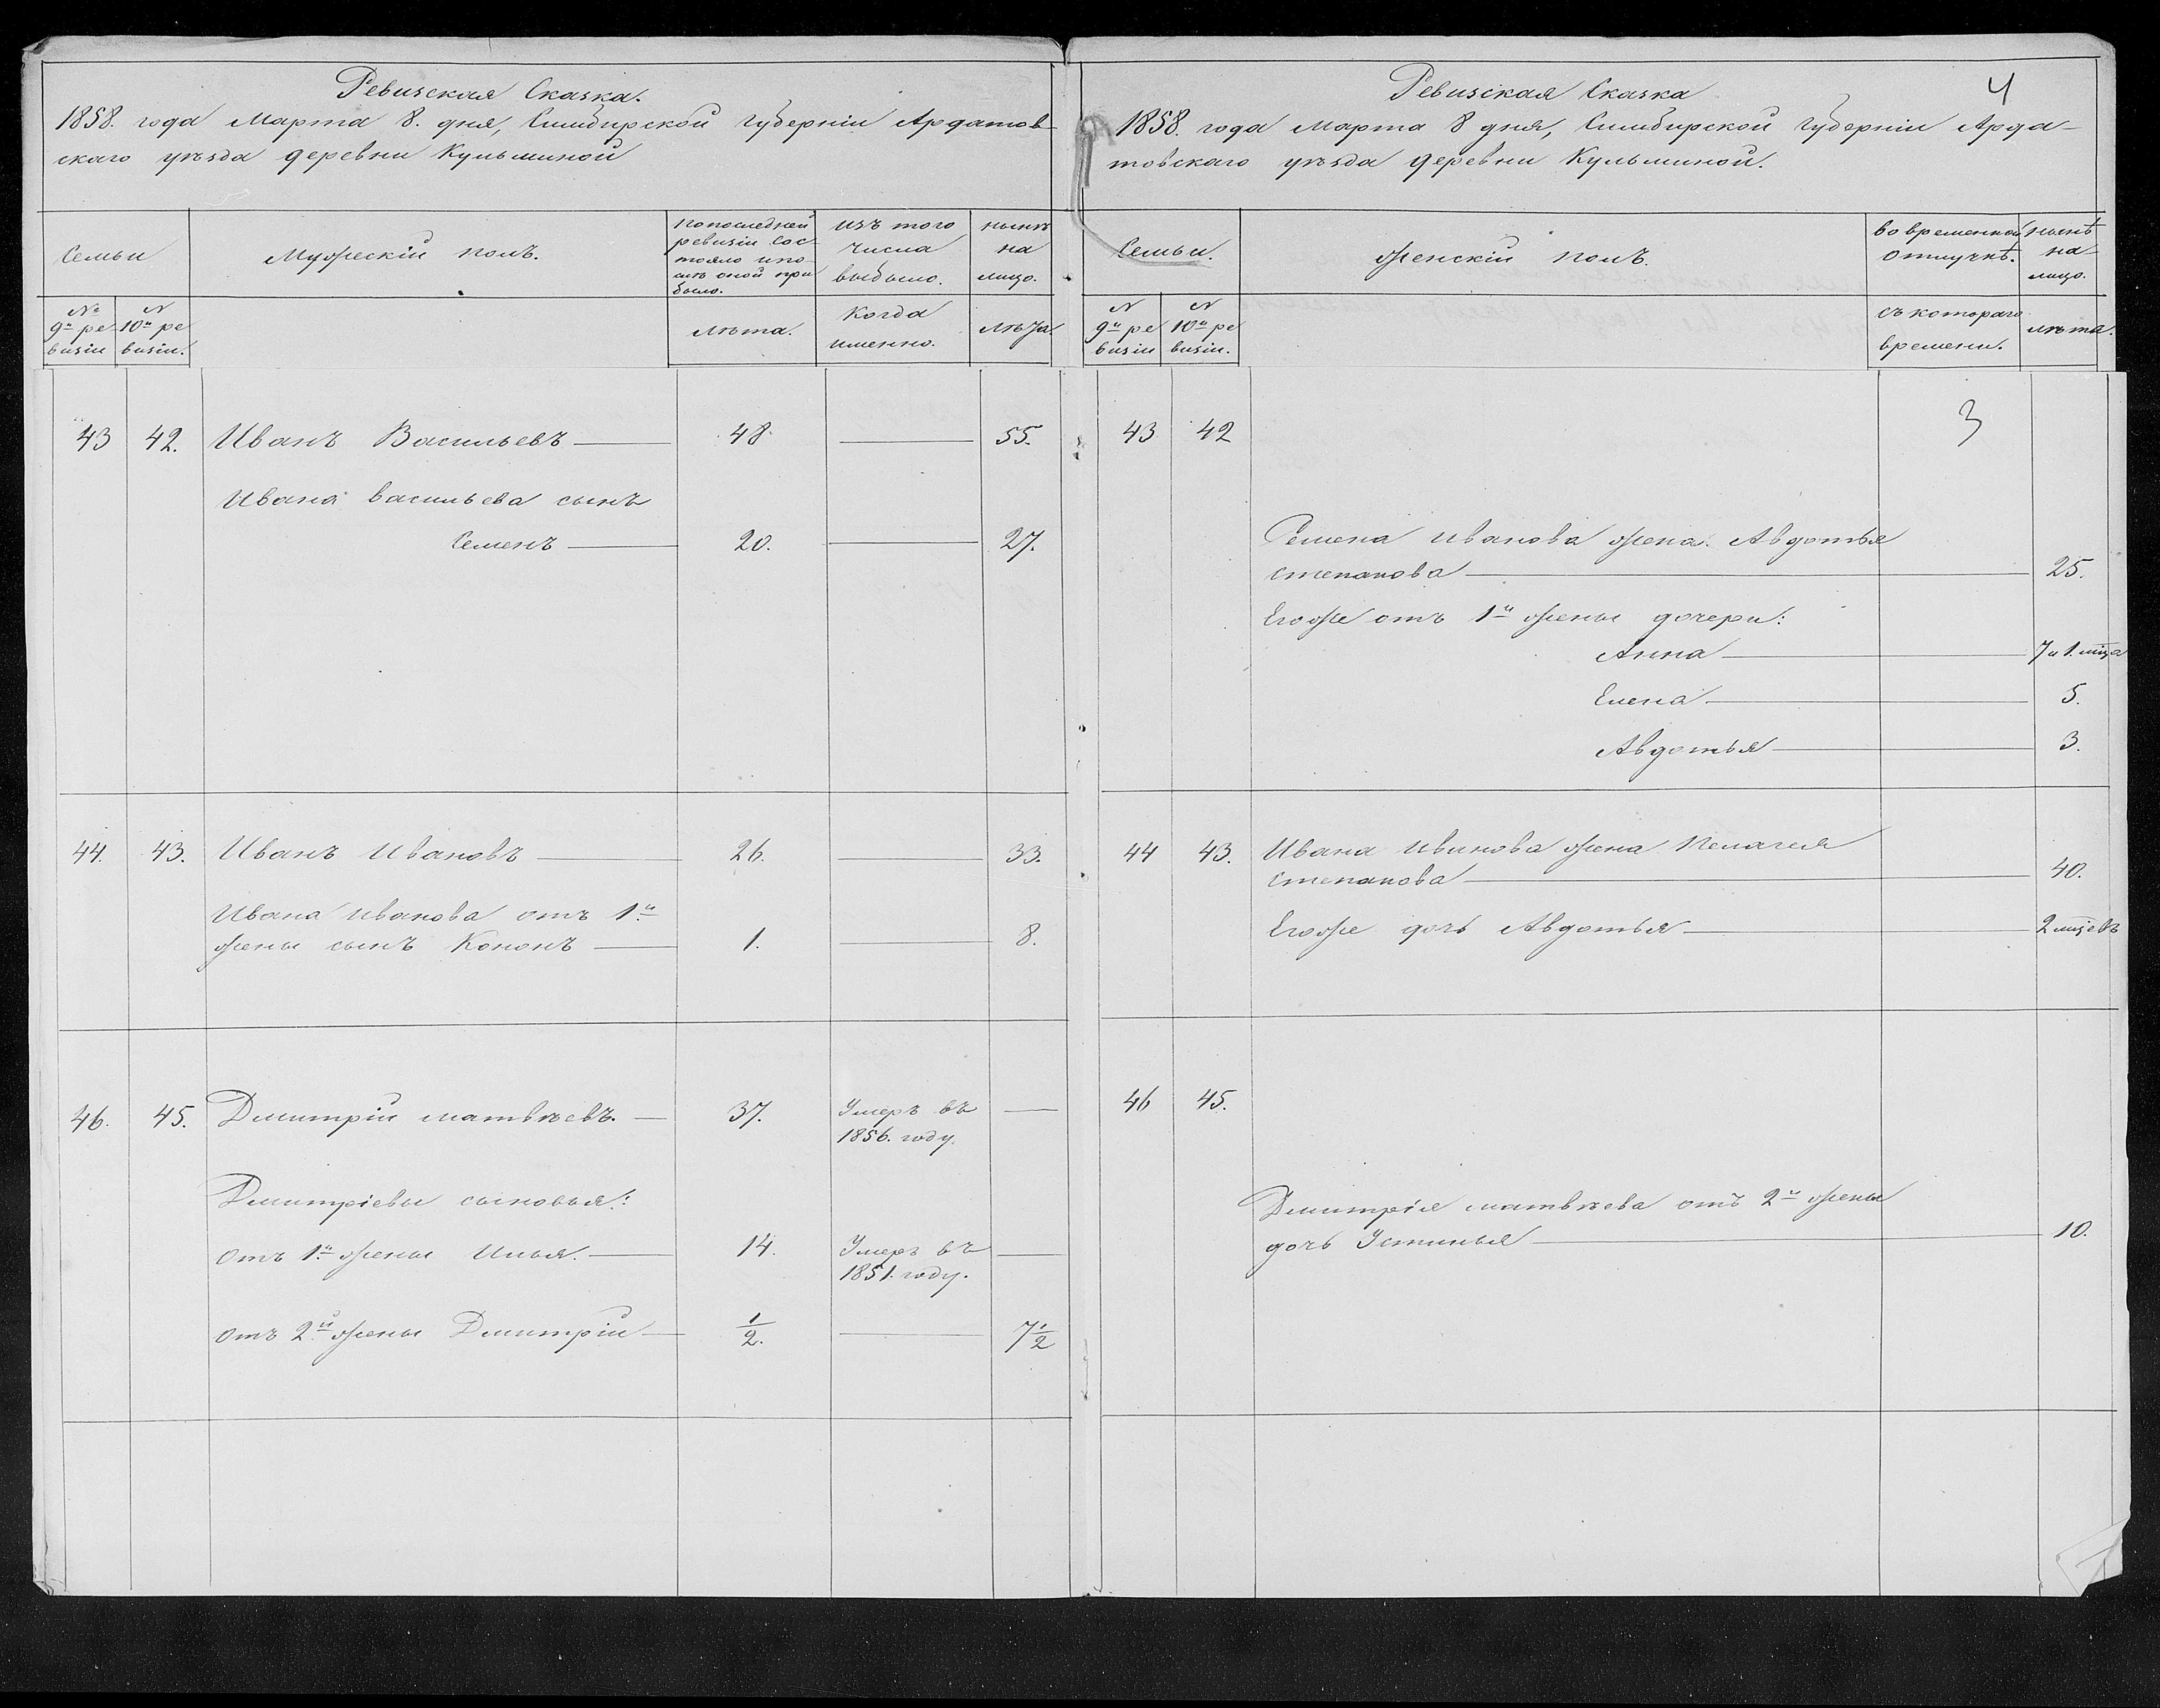 Ревизская Сказка.
1858. года Марта 8. дня, Симбирской Губерніи Ардатов-
скаго уѣзда деревни Кульминой
Семьи
Мужескій полъ.
по последней
ревизіи сос-
тояло и по-
слѣ оной при
было.
изъ того
числа
выбыло.
нынѣ
на
лицо.
№
9й ре
визіи
N
10й ре
визіи.
лѣта.
Когда
именно.
лѣта.
43 42. Иванъ Васильевъ — 48 — 55.
Ивана васильева сынъ
Семенъ — 20. — 27.
44. 43. Иванъ Ивановъ — 26. — 33.
Ивана Иванова отъ 1й
жены сынъ Кононъ — 1. — 8.
46. 45. Дмитрій матвѣевъ. — 37. Умеръ въ —
1856. году.
Дмитріевы сыновья:
отъ 1й жены Илья. — 14. Умеръ въ —
1851. году.
отъ 2й жены Дмитрій — 1/2. — 7 1/2
4
Ревизская Сказка
1858. года Марта 8 дня, Симбирской Губерніи Арда-
товскаго уѣзда деревни Кульминой.
Семьи.
женскій полъ.
во временной
отлучкѣ.
нынѣ
на
лицо.
N
9й ре
визіи
N
10й ре
визіи.
съ котораго
времени.
лѣта.
43 42 3
Семена Иванова жена. Авдотья
степанова — 25.
Егоже отъ 1й жены дочери:
Анна — 7 и 1. мца
Елена — 5.
Авдотья — 3.
44 43. Ивана Иванова жена Пелагея
степанова — 40.
Егоже дочь Авдотья — 2 мцевъ
46 45.
Дмитрія матвѣева отъ 2й жены
дочь Устинья — 10.